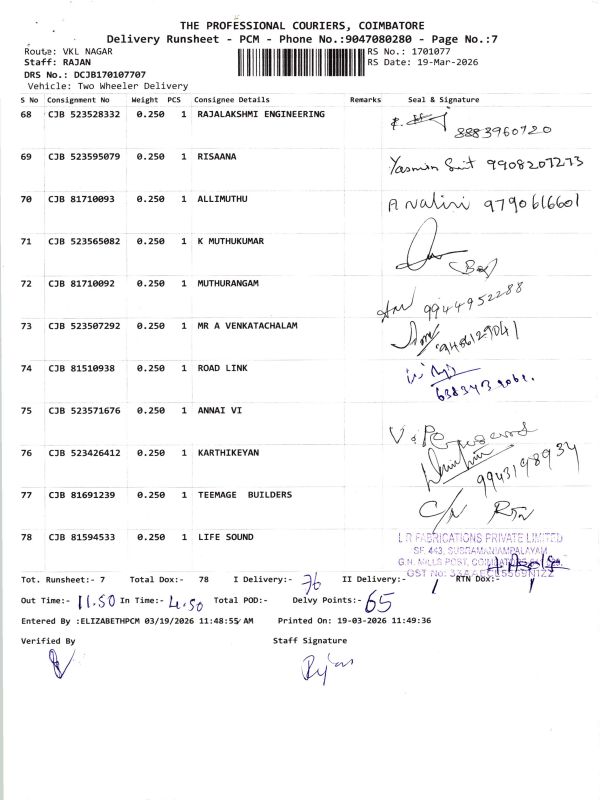 THE PROFESSIONAL COURIERS, COIMBATORE
Delivery Runsheet - PCM - Phone No.:9047080280 - Page No.:7
Route: VKL NAGAR RS No.: 1701077
Staff: RAJAN RS Date: 19-Mar-2026
DRS No.: DCJB170107707
Vehicle: Two Wheeler Delivery
S No Consignment No Weight PCS Consignee Details Remarks Seal & Signature
68 CJB 523528332 0.250 1 RAJALAKSHMI ENGINEERING
8883960720
69 CJB 523595079 0.250 1 RISAANA Yasmin 9908207273
70 CJB 81710093 0.250 1 ALLIMUTHU 9790616601
71 CJB 523565082 0.250 1 K MUTHUKUMAR
72 CJB 81710092 0.250 1 MUTHURANGAM 9944952288
73 CJB 523507292 0.250 1 MR A VENKATACHALAM
74 CJB 81510938 0.250 1 ROAD LINK
75 CJB 523571676 0.250 1 ANNAI VI
76 CJB 523426412 0.250 1 KARTHIKEYAN 9943198934
77 CJB 81691239 0.250 1 TEEMAGE BUILDERS C/N RTN
78 CJB 81594533 0.250 1 LIFE SOUND L R FABRICATIONS PRIVATE LIMITED
SF 443, SUBRAMANIAMPALAYAM,
G.N. MILLS POST,
Tot. Runsheet:- 7 Total Dox:- 78 I Delivery:- 76 II Delivery:- 1 RTN Dox:- 1
GST No:
Out Time:- 11.50 In Time:- 4.50 Total POD:- Delvy Points:- 65
Entered By :ELIZABETHPCM 03/19/2026 11:48:55 AM Printed On: 19-03-2026 11:49:36
Verified By Staff Signature